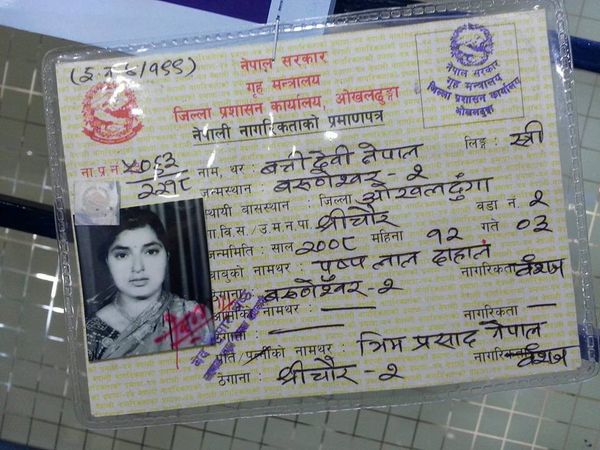 नेपाल सरकार
गृह मन्त्रालय
जिल्ला प्रशासन कार्यालय, ओखलढुङ्गा
नेपाली नागरिकताको प्रमाणपत्र
नेपाल सरकार
गृह मन्त्रालय
जिल्ला प्रशासन कार्यालय
ओखलढुङ्गा
ना.प्र.नं.
नाम, थर : बत्ती देवी नेपाल लिङ्ग : स्त्री
जन्मस्थान : बरुणेश्वर - २
स्थायी वासस्थान : जिल्ला ओखलढुंगा
गा.वि.स./उ.म.न.पा. श्रीचौर वडा नं. २
जन्ममिति : साल २००८ महिना १२ गते ०३
बाबुको नामथर : पुष्प लाल दाहाल नागरिकता वंशज
ठेगाना : बरुणेश्वर - २
आमाको नामथर : — नागरिकता —
ठेगाना : —
पति/पत्नीको नामथर : भिम प्रसाद नेपाल नागरिकता वंशज
ठेगाना : श्रीचौर - २